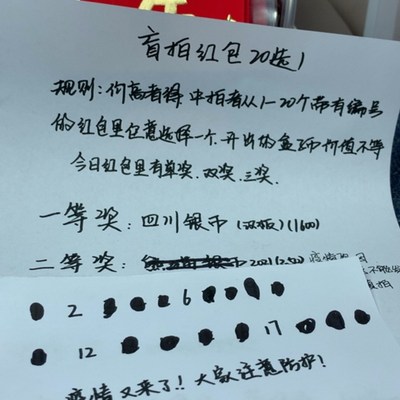 盲拍红包20选1
规则:价高者得,中拍者从1-20个带有编号
的红包里任意选择一个.开出的金币价值不等
今日红包里有单奖.双奖.三奖.
一等奖:四川银币(双板)(1600)
二等奖:
2 6
12 17
疫情又来了!!大家注意防护!